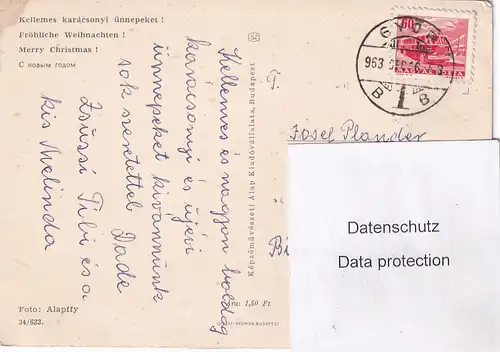 Kellemes karácsonyi ünnepeket !
Fröhliche Weihnachten !
Merry Christmas !
С новым годом
Kellemes és nagyon boldog
karácsonyi és újévi
ünnepeket kivannunk
sok szeretettel Dade
Zsuzsi Tibi és a
kis Melinda
Foto: Alapffy
34/633.
Képzőművészeti Alap Kiadóvállalata, Budapest
Ára: 1,50 Ft
T.
Josef Plander
Datenschutz
Data protection
GYŐR
963 DEC 16
B 1 B
60
MAGYAR POSTA